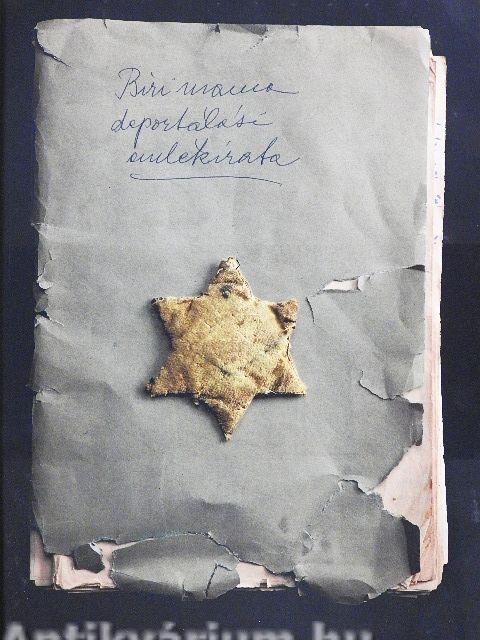 Biri mama
deportálási
emlékirata
Antikvárium.hu